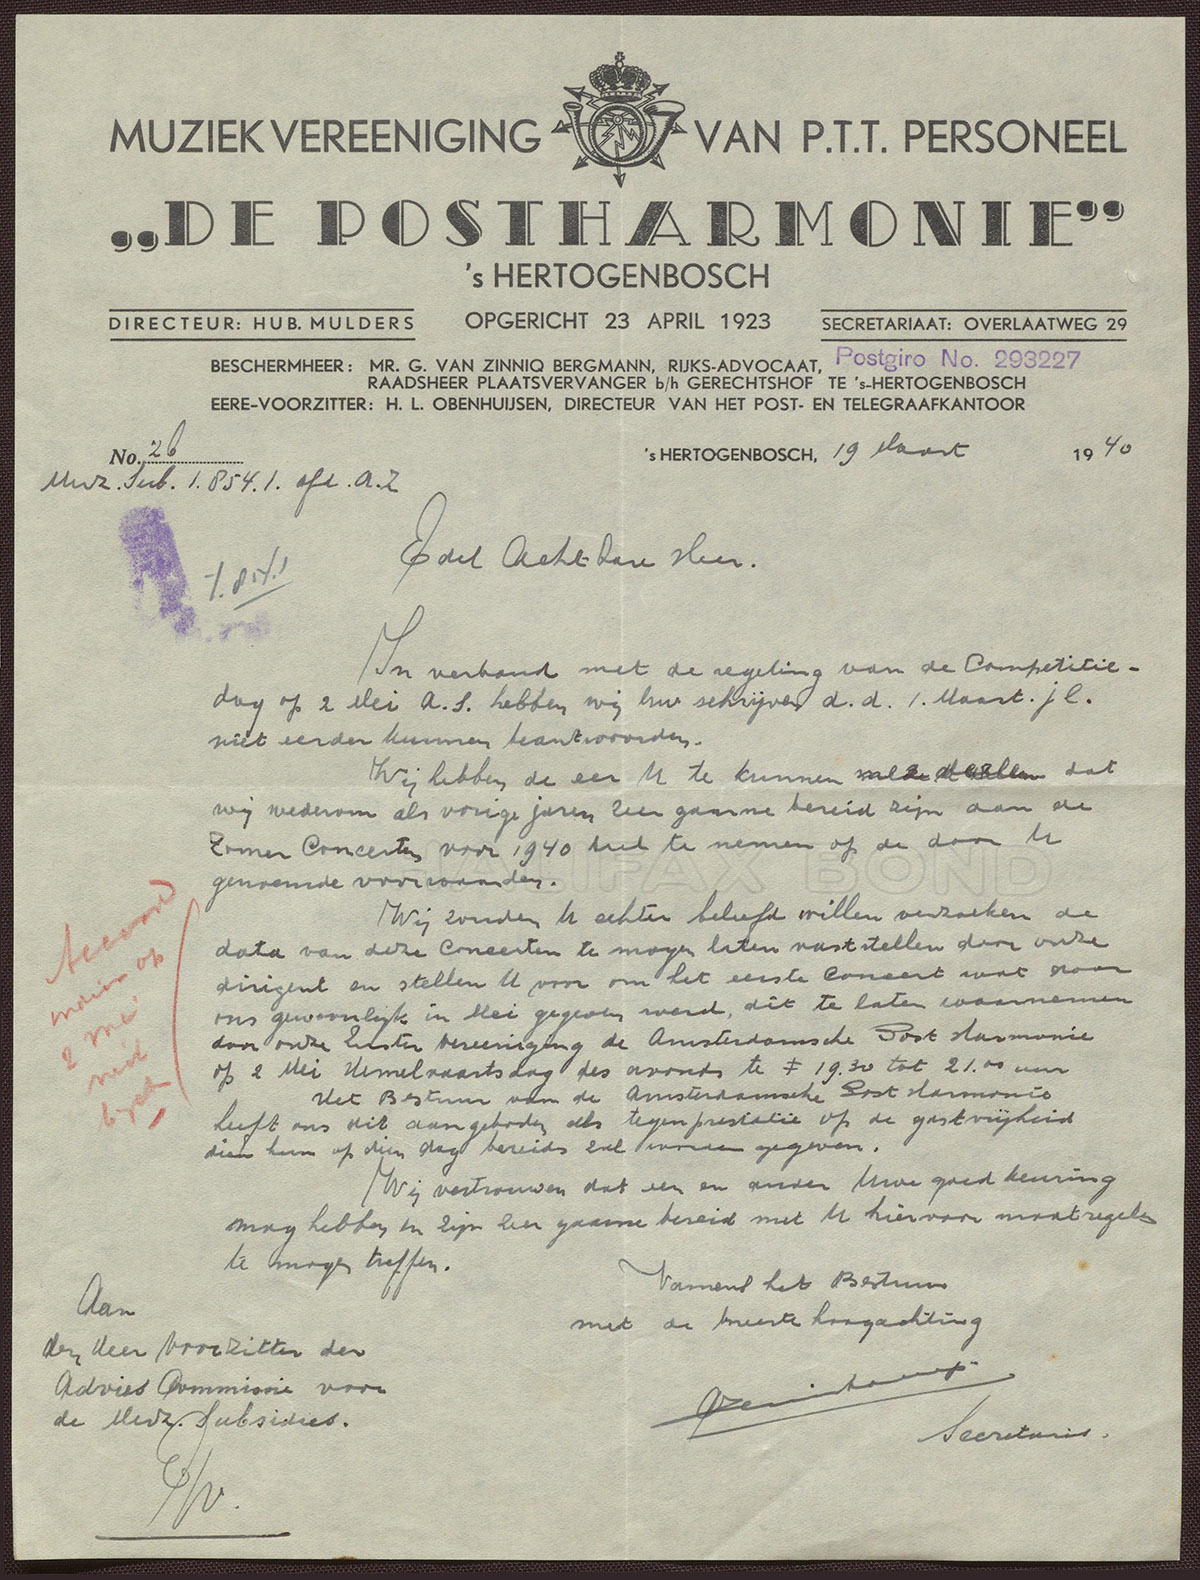 MUZIEKVEREENIGING VAN P.T.T. PERSONEEL
„DE POSTHARMONIE”
's HERTOGENBOSCH
DIRECTEUR: HUB. MULDERS
OPGERICHT 23 APRIL 1923
SECRETARIAAT: OVERLAATWEG 29
BESCHERMHEER: MR. G. VAN ZINNIQ BERGMANN, RIJKS-ADVOCAAT,
Postgiro No. 293227
RAADSHEER PLAATSVERVANGER b/h GERECHTSHOF TE 's-HERTOGENBOSCH
EERE-VOORZITTER: H. L. OBENHUIJSEN, DIRECTEUR VAN HET POST- EN TELEGRAAFKANTOOR
No. 26
's HERTOGENBOSCH, 19 Maart 1940
Muz. Sub. 1.854.1. afd. A.Z
1.854.1
Edel Achtbare Heer.
In verband met de regeling van de Competitie-
dag op 2 Mei A.S. hebben wij Uw schrijven d.d. 1. Maart. j l.
niet eerder kunnen beantwoorden.
Wij hebben de eer U te kunnen mede deelen dat
wij wederom als vorige jaren zeer gaarne bereid zijn aan de
Zomer Concerten voor 1940 deel te nemen op de door U
genoemde voorwaarden.
Wij zouden U echter beleefd willen verzoeken de
data van deze Concerten te mogen laten vaststellen door onze
dirigent en stellen U voor om het eerste Concert wat door
ons gewoonlijk in Mei gegeven werd, dit te laten waarnemen
door onze Zuster vereeniging de Amsterdamsche Post Harmonie
op 2 Mei Hemelvaartsdag des avonds te ± 19.30 tot 21.00 uur
Het Bestuur van de Amsterdamsche Post Harmonie
heeft ons dit aangeboden als tegenprestatie op de gastvrijheid
dien hun op dien dag bereids zal worden gegeven.
Wij vertrouwen dat een en ander Uwe goed keuring
mag hebben en zijn zeer gaarne bereid met U hiervoor maatregelen
te mogen treffen.
Accoord
op
2 mei
Namens het Bestuur
met de meeste hoogachting
Secretaris.
Aan
den Heer Voorzitter der
Advies Commissie voor
de Muz. Subsidies.
HALIFAX BOND